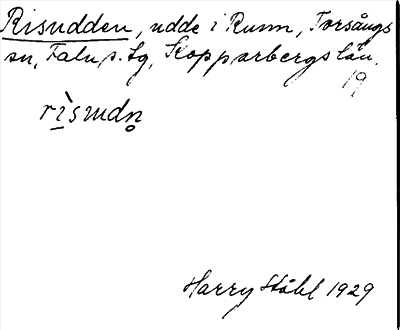 Risudden, udde i Runn, Torsångs
sn, Falu s. tg, Kopparbergs län.
19
rìsudn̥
Harry Ståhl 1929